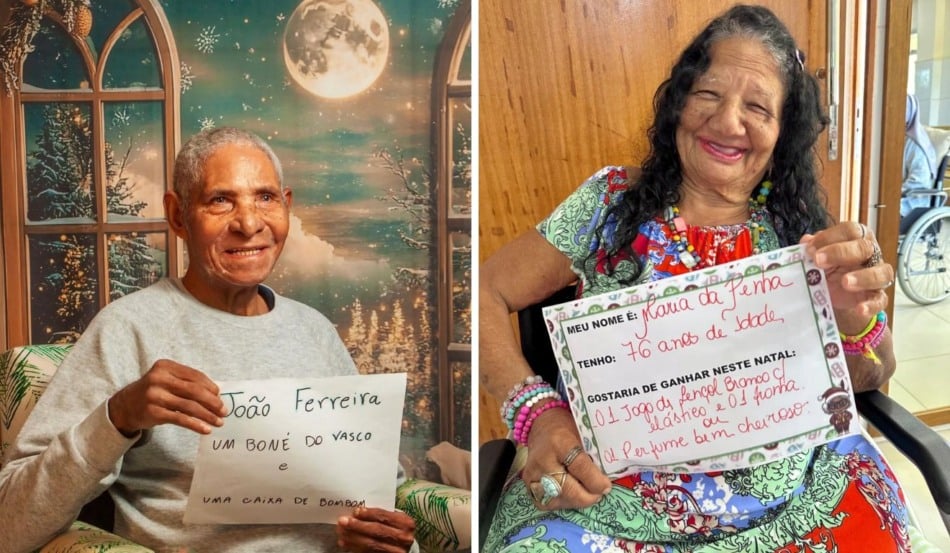 João Ferreira
UM BONÉ DO VASCO
e
UMA CAIXA DE BOMBOM
MEU NOME É: Maria da Penha
TENHO: 76 anos de Idade,
GOSTARIA DE GANHAR NESTE NATAL:
01 Jogo de lençol Branco c/
elástico e 01 fronha.
ou
01 Perfume bem cheiroso.